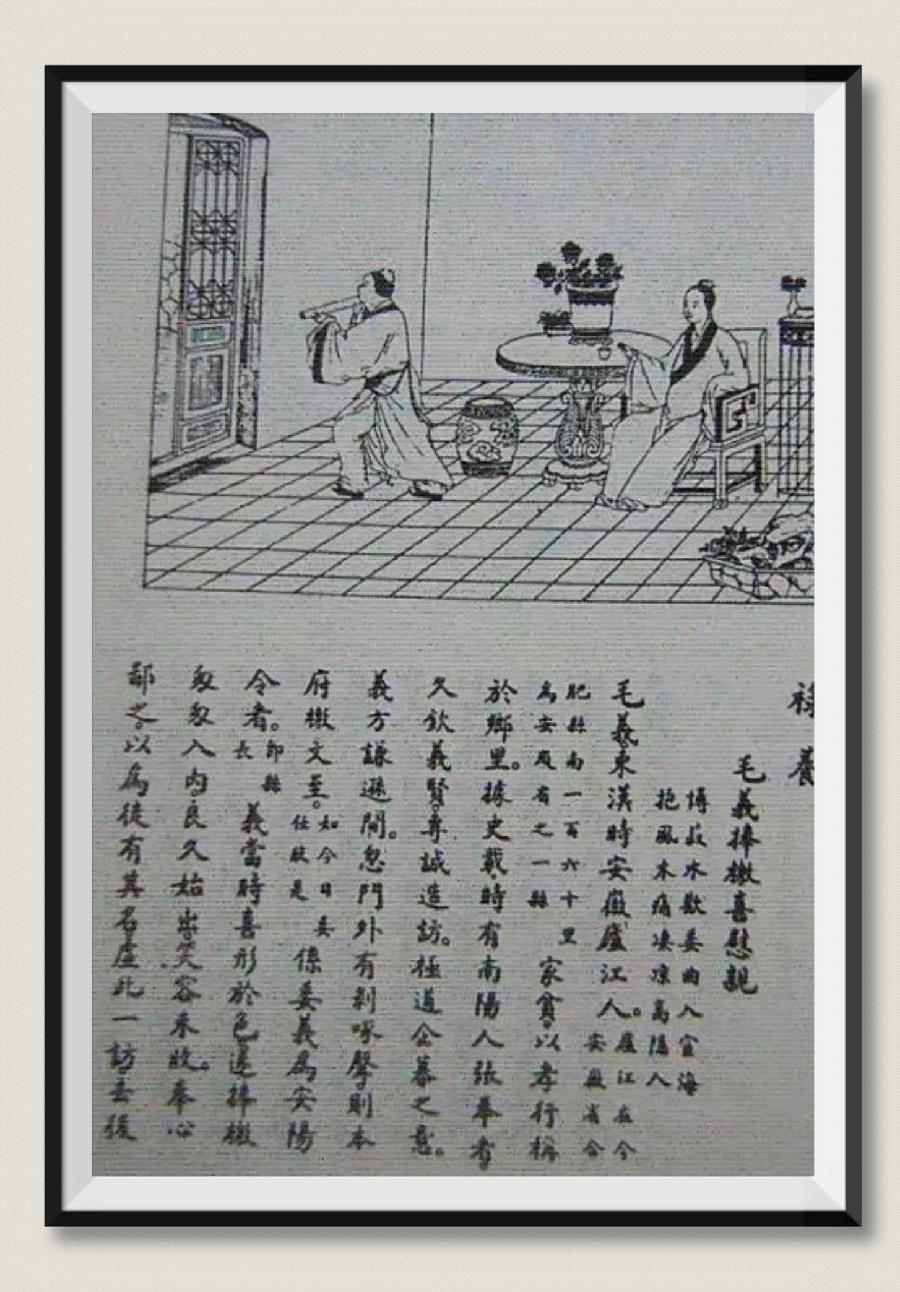 祿養
毛義捧檄喜慰親
傅菽水歡委曲入宦海
抱風木痛淒凉高隱人
毛義東漢時安徽廬江人。廬江在今安徽省合
肥縣南一百六十里為安徽省之一縣家貧。以孝行稱
於鄉里。據史載時有南陽人張奉者
久欽義賢。專誠造訪。極道企慕之意。
義方謙遜間。忽門外有剝啄聲。則本
府檄文至。如今日委任狀是係委義為安陽
令者。即縣長義當時喜形於色。遂捧檄
匆匆入內。良久始出。笑容未收。奉心
鄙之。以為徒有其名。虛此一訪。去後